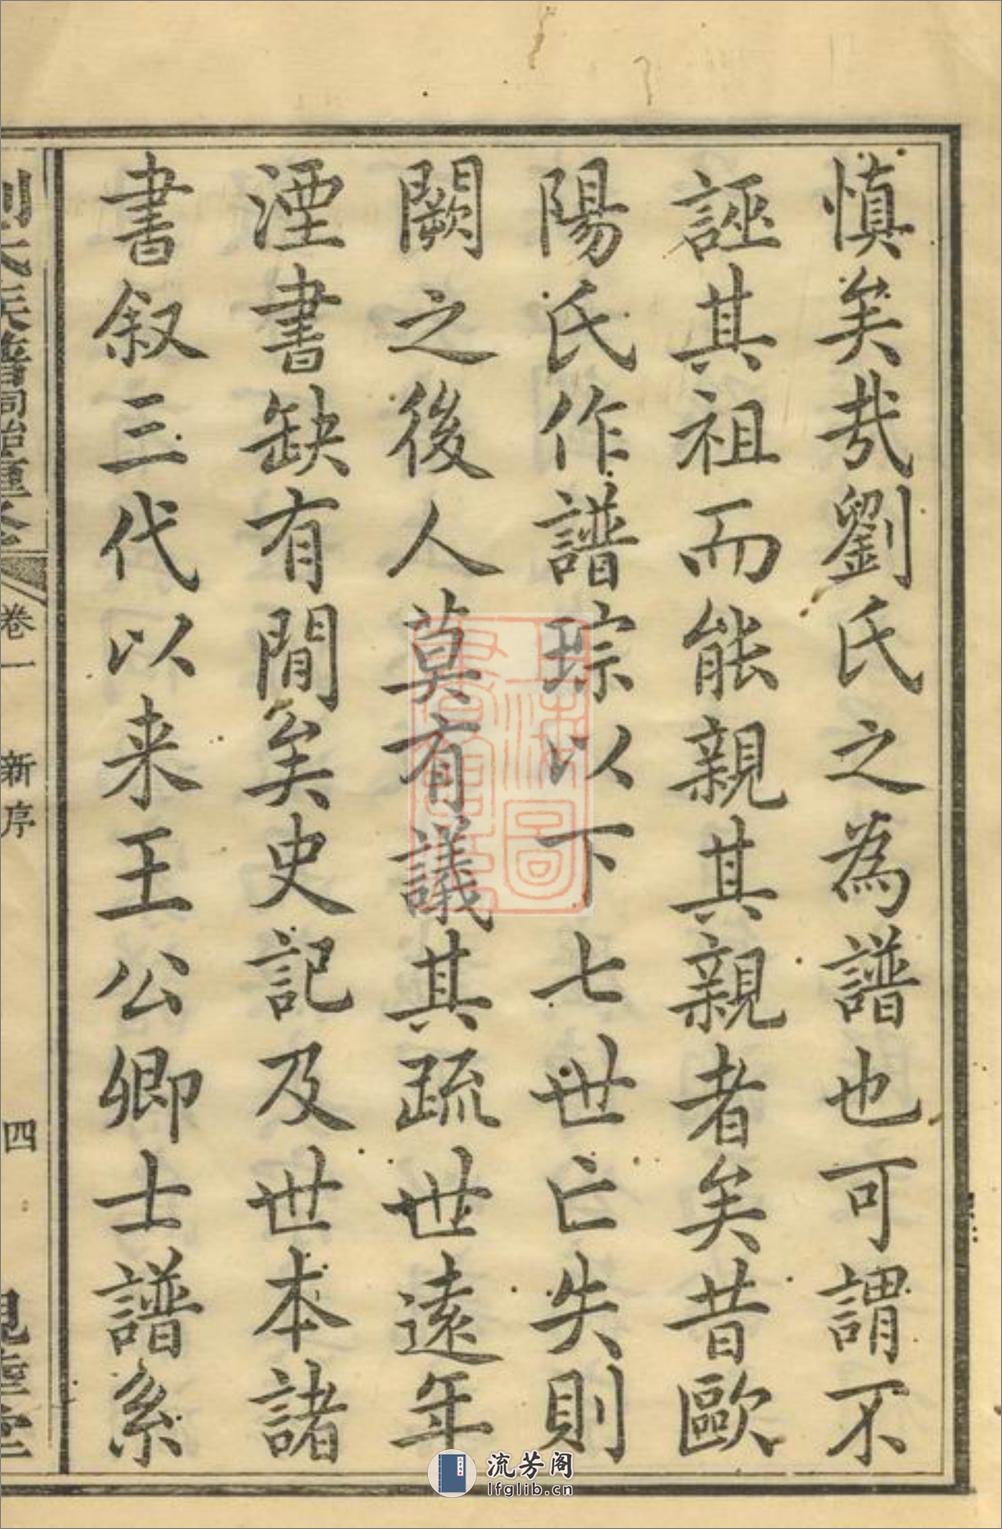 慎矣哉劉氏之為譜也可謂不
誣其祖而能親其親者矣昔歐
陽氏作譜琮以下七世亡失則
闕之後人莫有議其疏世遠年
湮書缺有間矣史記及世本諸
書叙三代以来王公卿士譜系
卷一
新序
四
流芳阁
lfglib.cn